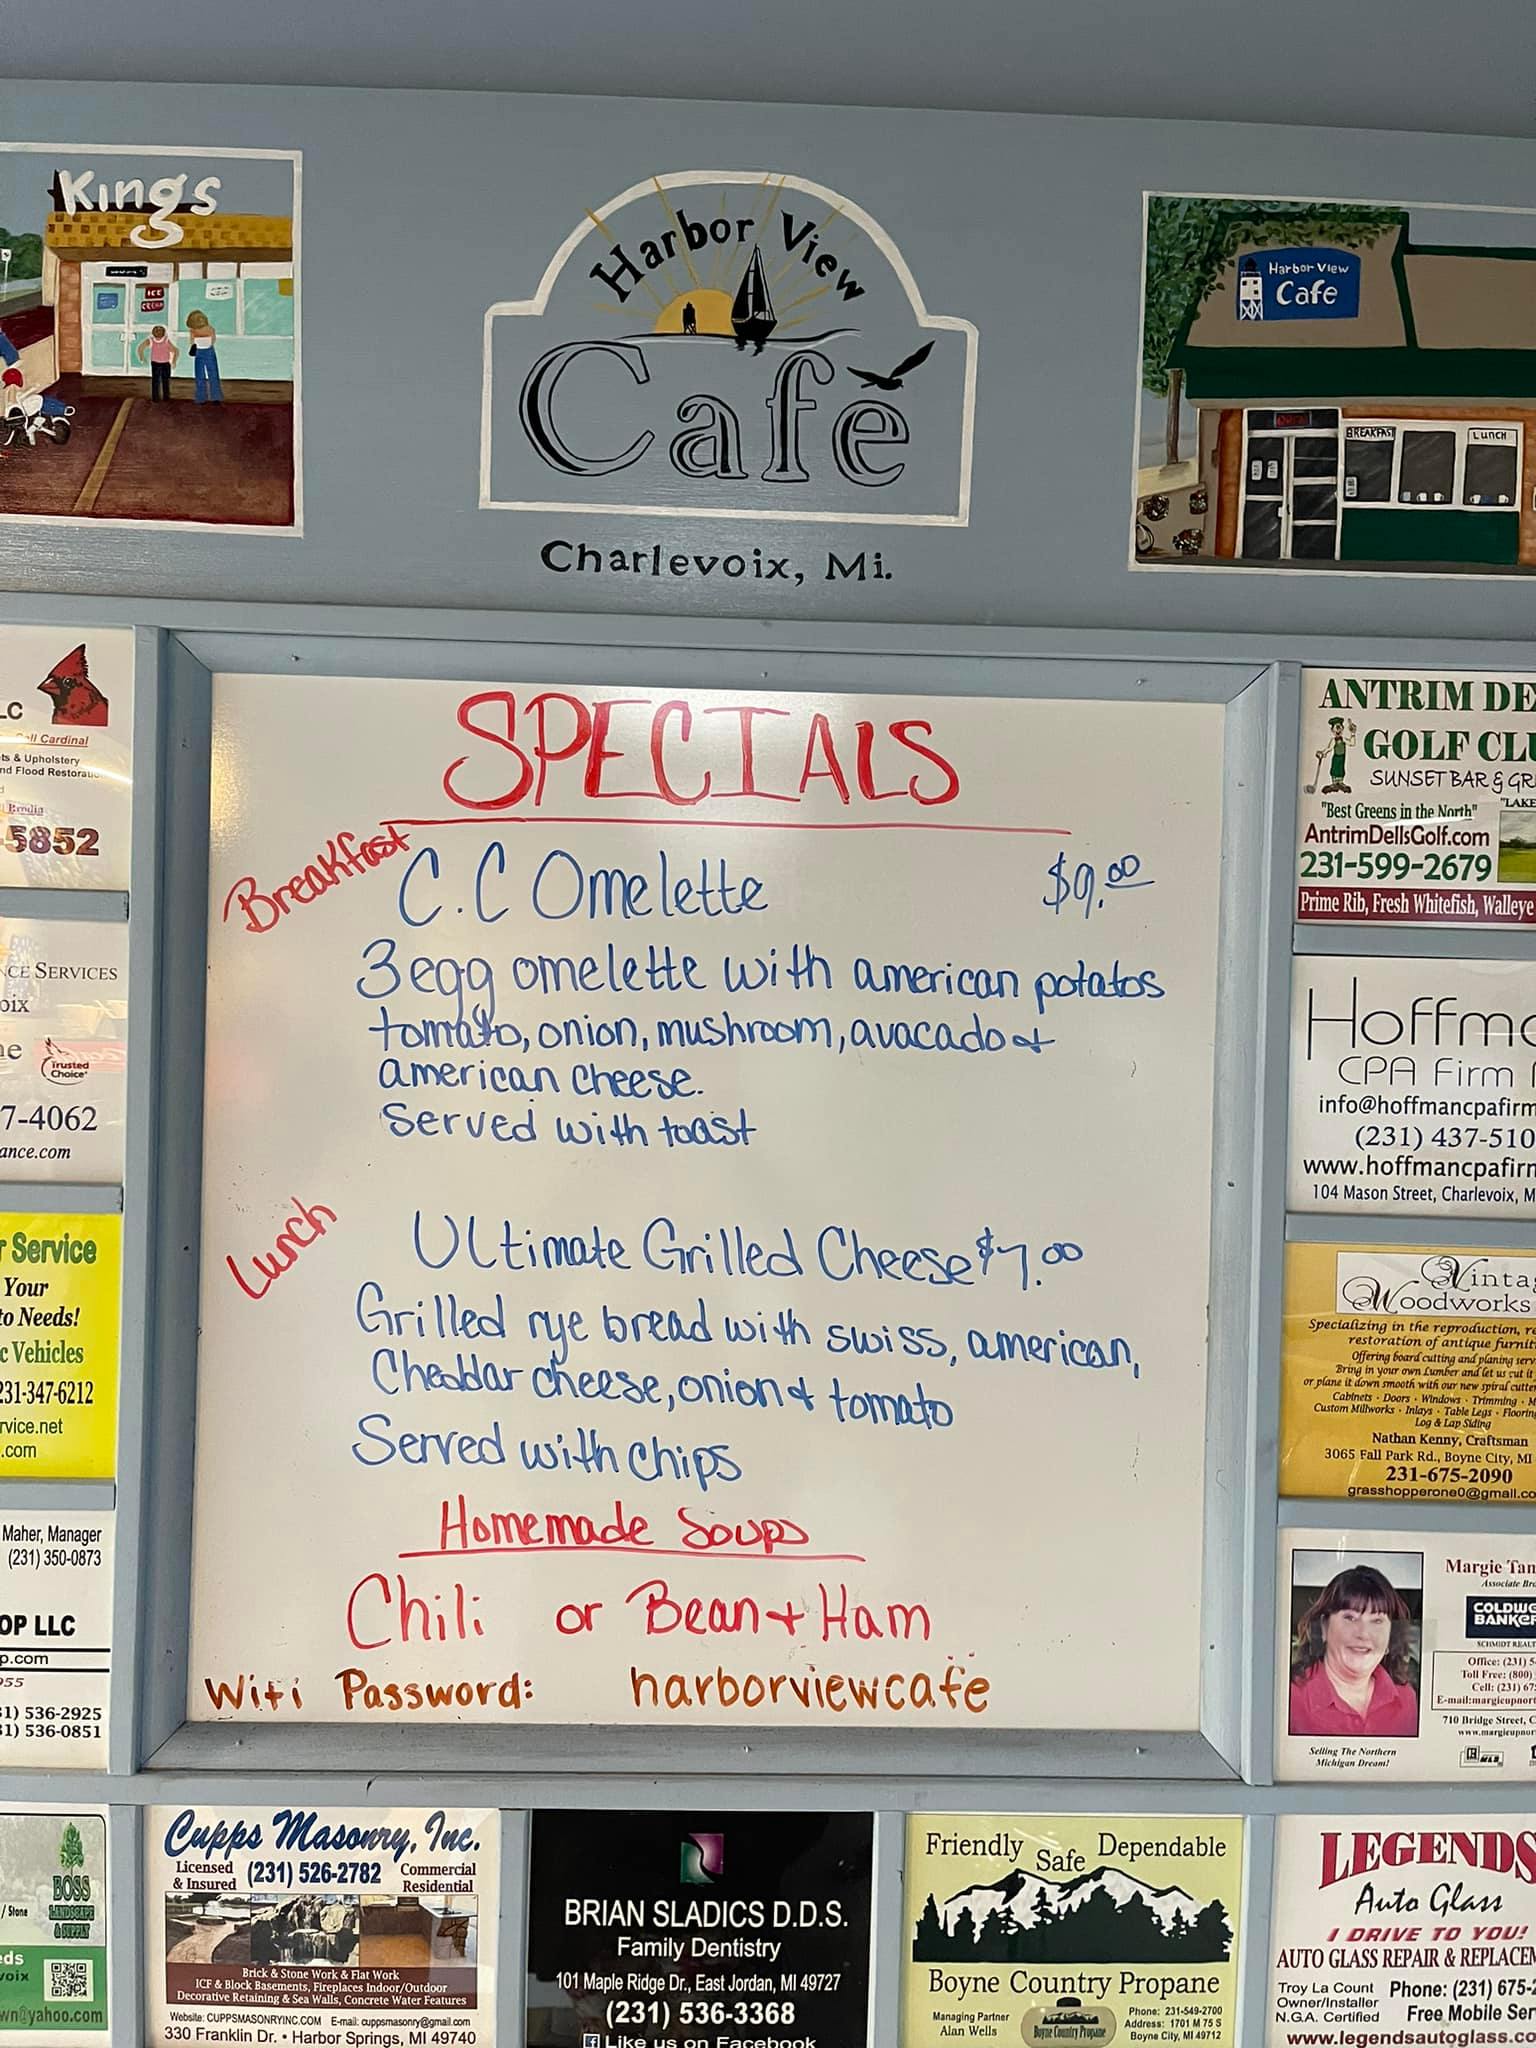 Kings
ICE
CREAM
Harbor View
Cafe
Charlevoix, Mi.
Harbor View
Cafe
OPEN
BREAKFAST
LUNCH
SPECIALS
Breakfast
C.C Omelette $9.00
3 egg omelette with american potatos
tomato, onion, mushroom, avacado +
american cheese.
Served with toast
Lunch
Ultimate Grilled Cheese $7.00
Grilled rye bread with swiss, american,
Cheddar cheese, onion + tomato
Served with chips
Homemade Soups
Chili or Bean + Ham
Wifi Password: harborviewcafe
LC
Call Cardinal
ts & Upholstery
nd Flood Restoratio
-5852
NCE SERVICES
oix
ne
Trusted
Choice
7-4062
ance.com
r Service
Your
to Needs!
c Vehicles
231-347-6212
rvice.net
.com
Maher, Manager
(231) 350-0873
OP LLC
p.com
955
31) 536-2925
31) 536-0851
ANTRIM DE
GOLF CLU
SUNSET BAR & GRI
"Best Greens in the North"
"LAKE
AntrimDellsGolf.com
231-599-2679
Prime Rib, Fresh Whitefish, Walleye
Hoffma
CPA Firm
info@hoffmancpafirm
(231) 437-510
www.hoffmancpafirm
104 Mason Street, Charlevoix, M
Vintag
Woodworks
Specializing in the reproduction, re
restoration of antique furnit
Offering board cutting and planing serv
Bring in your own Lumber and let us cut it
or plane it down smooth with our new spiral cutter
Cabinets · Doors · Windows · Trimming · M
Custom Millworks · Inlays · Table Legs · Floorin
Log & Lap Siding
Nathan Kenny, Craftsman
3065 Fall Park Rd., Boyne City, MI
231-675-2090
grasshopperone0@gmail.co
Margie Tan
Associate Bro
COLDWE
BANKER
SCHMIDT REALT
Office: (231) 5
Toll Free: (800)
Cell: (231) 67
E-mail:margieupnort
710 Bridge Street, C
www.margieupnor
Selling The Northern
Michigan Dream!
MLS
BOSS
LANDSCAPE
& SUPPLY
/ Stone
eds
voix
wn@yahoo.com
Cupps Masonry, Inc.
Licensed
& Insured
(231) 526-2782
Commercial
Residential
Brick & Stone Work & Flat Work
ICF & Block Basements, Fireplaces Indoor/Outdoor
Decorative Retaining & Sea Walls, Concrete Water Features
Website: CUPPSMASONRYINC.COM E-mail: cuppsmasonry@gmail.com
330 Franklin Dr. • Harbor Springs, MI 49740
BRIAN SLADICS D.D.S.
Family Dentistry
101 Maple Ridge Dr., East Jordan, MI 49727
(231) 536-3368
Like us on Facebook
Friendly Safe Dependable
Boyne Country Propane
Managing Partner
Alan Wells
Boyne Country Propane
Phone: 231-549-2700
Address: 1701 M 75 S
Boyne City, MI 49712
LEGENDS
Auto Glass
I DRIVE TO YOU!
AUTO GLASS REPAIR & REPLACEM
Troy La Count
Owner/Installer
N.G.A. Certified
Phone: (231) 675-2
Free Mobile Ser
www.legendsautoglass.co